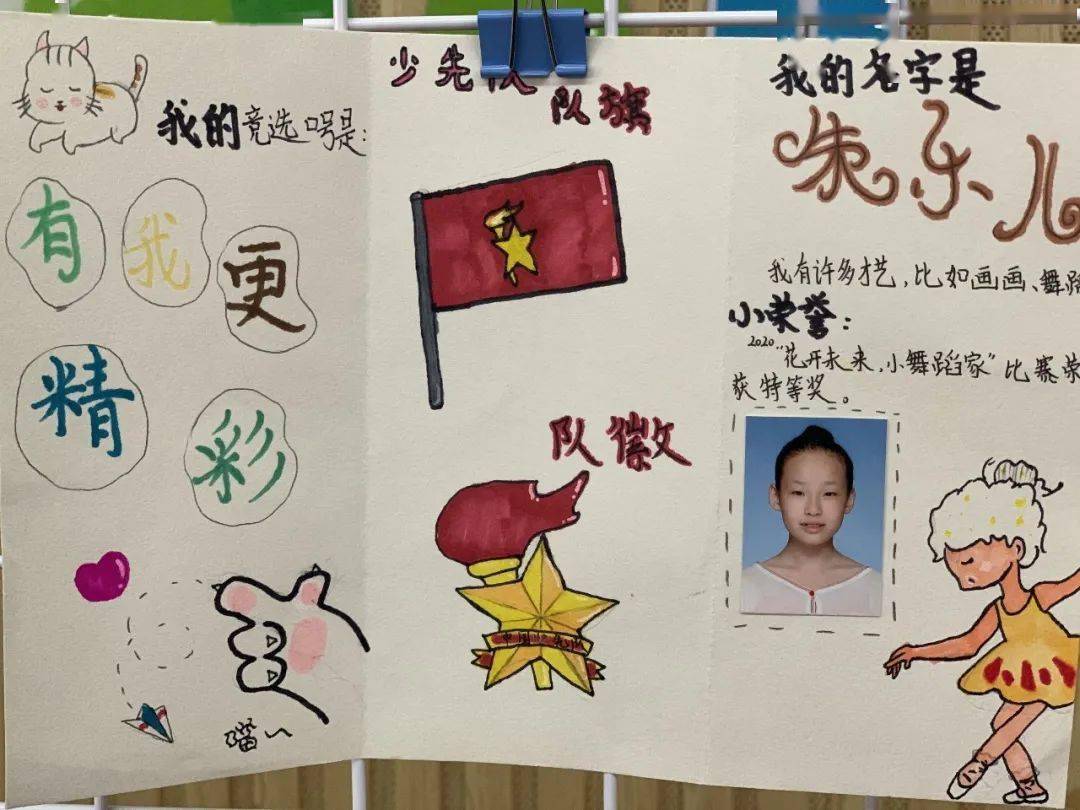 我的竞选口号是:
有我更
精彩
少先队
队旗
队徽
我的名字是
朱乐儿
我有许多才艺,比如画画、舞蹈
小荣誉:
2020"花开未来,小舞蹈家"比赛荣
获特等奖。